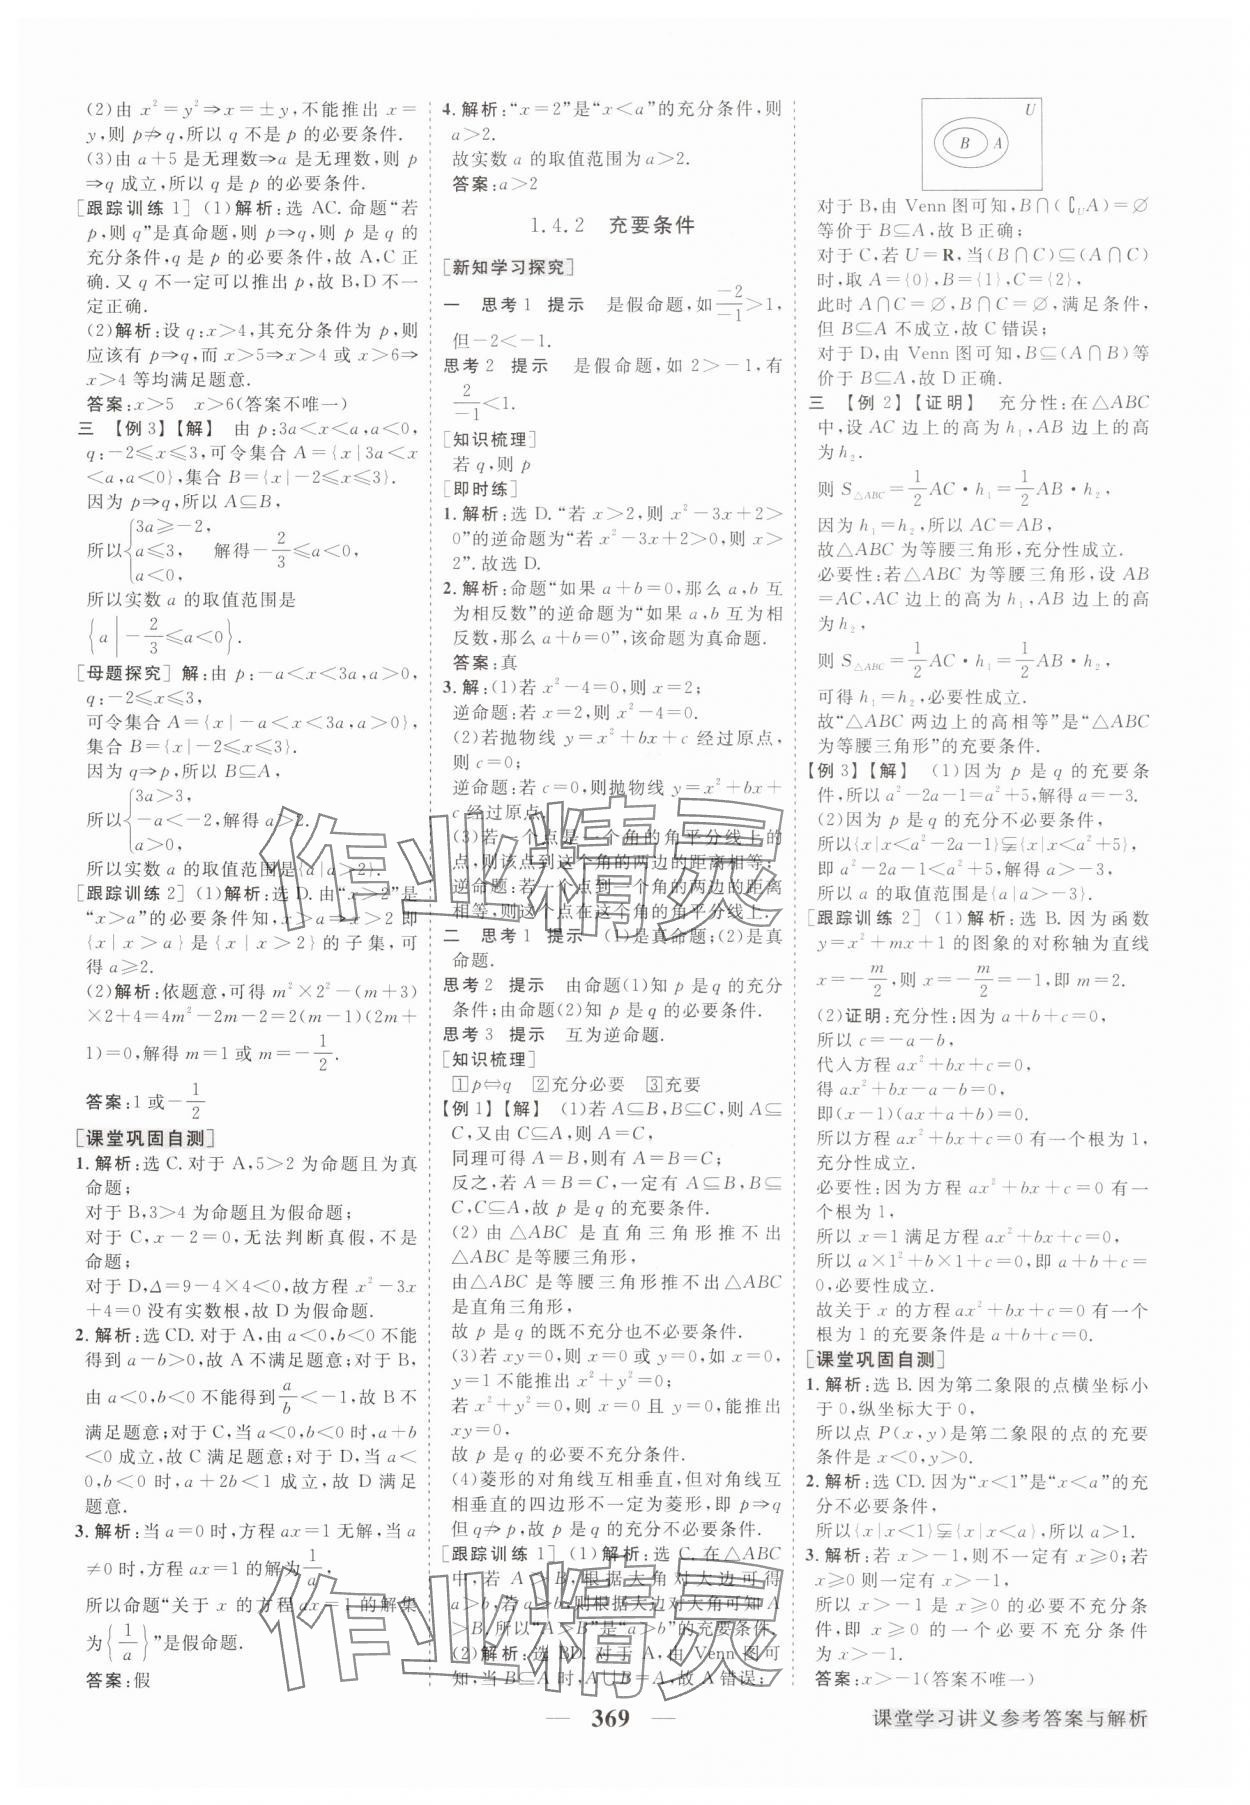 (2)由 x²=y²⇒x=±y,不能推出 x=
y,则 p⇏q,所以 q 不是 p 的必要条件.
(3)由 a+5 是无理数⇒a 是无理数,则 p
⇒q 成立,所以 q 是 p 的必要条件.
[跟踪训练 1] (1)解析:选 AC. 命题“若
p,则 q”是真命题,则有 p⇒q,p 是 q 的
充分条件,q 是 p 的必要条件,故 A,C 正
确. 又 q 不一定可以推出 p,故 B,D 不一
定正确.
(2)解析:设 q:x>4,其充分条件为 p,则
应该有 p⇒q,而 x>5⇒x>4 或 x>6⇒
x>4 等均满足题意.
答案:x>5 x>6(答案不唯一)
三 【例 3】【解】 由 p:3a<x<a,a<0,
q:-2≤x≤3,可令集合 A={x|3a<x
<a,a<0},集合 B={x|-2≤x≤3}.
因为 p⇒q,所以 A⊆B,
所以{3a≥-2, a≤3, a<0, 解得-2/3≤a<0,
所以实数 a 的取值范围是
{a|-2/3≤a<0}.
[母题探究] 解:由 p:-a<x<3a,a>0,
q:-2≤x≤3,
可令集合 A={x|-a<x<3a,a>0},
集合 B={x|-2≤x≤3}.
因为 q⇒p,所以 B⊆A,
所以{3a>3, -a<-2, a>0, 解得 a>2.
所以实数 a 的取值范围是{a|a>2}.
[跟踪训练 2] (1)解析:选 D. 由“x>2”是
“x>a”的必要条件知,x>a⇒x>2 即
{x|x>a}是{x|x>2}的子集,可
得 a≥2.
(2)解析:依题意,可得 m²×2²-(m+3)
×2+4=4m²-2m-2=2(m-1)(2m+
1)=0,解得 m=1 或 m=-1/2.
答案:1 或-1/2
[课堂巩固自测]
1. 解析:选 C. 对于 A,5>2 为命题且为真
命题;
对于 B,3>4 为命题且为假命题;
对于 C,x-2=0,无法判断真假,不是
命题;
对于 D,Δ=9-4×4<0,故方程 x²-3x
+4=0 没有实数根,故 D 为假命题.
2. 解析:选 CD. 对于 A,由 a<0,b<0 不能
得到 a-b>0,故 A 不满足题意;对于 B,
由 a<0,b<0 不能得到 a/b<-1,故 B 不
满足题意;对于 C,当 a<0,b<0 时,a+b
<0 成立,故 C 满足题意;对于 D,当 a<
0,b<0 时,a+2b<1 成立,故 D 满足
题意.
3. 解析:当 a=0 时,方程 ax=1 无解,当 a
≠0 时,方程 ax=1 的解为 1/a,
所以命题“关于 x 的方程 ax=1 的解集
为{1/a}”是假命题.
答案:假
4. 解析:“x=2”是“x<a”的充分条件,则
a>2.
故实数 a 的取值范围为 a>2.
答案:a>2
1.4.2 充要条件
[新知学习探究]
一 思考 1 提示 是假命题,如 -2/-1>1,
但-2<-1.
思考 2 提示 是假命题,如 2>-1,有
2/-1<1.
[知识梳理]
若 q,则 p
[即时练]
1. 解析:选 D. “若 x>2,则 x²-3x+2>
0”的逆命题为“若 x²-3x+2>0,则 x>
2”. 故选 D.
2. 解析:命题“如果 a+b=0,那么 a,b 互
为相反数”的逆命题为“如果 a,b 互为相
反数,那么 a+b=0”,该命题为真命题.
答案:真
3. 解:(1)若 x²-4=0,则 x=2;
逆命题:若 x=2,则 x²-4=0.
(2)若抛物线 y=x²+bx+c 经过原点,
则 c=0;
逆命题:若 c=0,则抛物线 y=x²+bx+
c 经过原点.
(3)若一个点是一个角的角平分线上的
点,则该点到这个角的两边的距离相等;
逆命题:若一个点到一个角的两边的距离
相等,则这个点在这个角的角平分线上.
二 思考 1 提示 (1)是真命题;(2)是真
命题.
思考 2 提示 由命题(1)知 p 是 q 的充分
条件;由命题(2)知 p 是 q 的必要条件.
思考 3 提示 互为逆命题.
[知识梳理]
1 p⇔q 2 充分必要 3 充要
【例 1】【解】 (1)若 A⊆B,B⊆C,则 A⊆
C,又由 C⊆A,所以 A=C,
同理可得 A=B,则有 A=B=C;
反之,若 A=B=C,一定有 A⊆B,B⊆
C,C⊆A,故 p 是 q 的充要条件.
(2)由△ABC 是直角三角形推不出
△ABC 是等腰三角形,
由△ABC 是等腰三角形推不出△ABC
是直角三角形,
故 p 是 q 的既不充分也不必要条件.
(3)若 xy=0,则 x=0 或 y=0,如 x=0,
y=1 不能推出 x²+y²=0,
若 x²+y²=0,则 x=0 且 y=0,能推出
xy=0,
故 p 是 q 的必要不充分条件.
(4)菱形的对角线互相垂直,但对角线互
相垂直的四边形不一定为菱形,即 p⇒q
但 q⇏p,故 p 是 q 的充分不必要条件.
[跟踪训练 1] (1)解析:选 C. 在△ABC
中,若 A>B,根据大角对大边可得
a>b,若 a>b,根据大边对大角可知 A
>B.所以“A>B”是“a>b”的充要条件.
(2)解析:选 BD. 对于 A,由 Venn 图可
知,当 B⊆A 时,A∪B=A,故 A 错误;
U
B A
对于 B,由 Venn 图可知,B∩(∁UA)=∅
等价于 B⊆A,故 B 正确;
对于 C,若 U=R,当(B∩C)⊆(A∩C)
时,取 A={0},B={1},C={2},
此时 A∩C=∅,B∩C=∅,满足条件,
但 B⊆A 不成立,故 C 错误;
对于 D,由 Venn 图可知,B⊆(A∩B)等
价于 B⊆A,故 D 正确.
三 【例 2】【证明】 充分性:在△ABC
中,设 AC 边上的高为 h₁,AB 边上的高
为 h₂.
则 S△ABC=1/2 AC·h₁=1/2 AB·h₂,
因为 h₁=h₂,所以 AC=AB,
故△ABC 为等腰三角形,充分性成立.
必要性:若△ABC 为等腰三角形,设 AB
=AC,AC 边上的高为 h₁,AB 边上的高
为 h₂,
则 S△ABC=1/2 AC·h₁=1/2 AB·h₂,
可得 h₁=h₂,必要性成立.
故“△ABC 两边上的高相等”是“△ABC
为等腰三角形”的充要条件.
【例 3】【解】 (1)因为 p 是 q 的充要条
件,所以 a²-2a-1=a²+5,解得 a=-3.
(2)因为 p 是 q 的充分不必要条件,
所以{x|x<a²-2a-1}⫋{x|x<a²+5},
即 a²-2a-1<a²+5,解得 a>-3.
所以 a 的取值范围是{a|a>-3}.
[跟踪训练 2] (1)解析:选 B. 因为函数
y=x²+mx+1 的图象的对称轴为直线
x=-m/2,则 x=-m/2=-1,即 m=2.
(2)证明:充分性:因为 a+b+c=0,
所以 c=-a-b,
代入方程 ax²+bx+c=0,
得 ax²+bx-a-b=0,
即(x-1)(ax+a+b)=0.
所以方程 ax²+bx+c=0 有一个根为 1,
充分性成立.
必要性:因为方程 ax²+bx+c=0 有一
个根为 1,
所以 x=1 满足方程 ax²+bx+c=0,
所以 a×1²+b×1+c=0,即 a+b+c=
0,必要性成立.
故关于 x 的方程 ax²+bx+c=0 有一个
根为 1 的充要条件是 a+b+c=0.
[课堂巩固自测]
1. 解析:选 B. 因为第二象限的点横坐标小
于 0,纵坐标大于 0,
所以点 P(x,y)是第二象限的点的充要
条件是 x<0,y>0.
2. 解析:选 CD. 因为“x<1”是“x<a”的充
分不必要条件,
所以{x|x<1}⫋{x|x<a},所以 a>1.
3. 解析:若 x>-1,则不一定有 x≥0;若
x≥0 则一定有 x>-1,
所以 x>-1 是 x≥0 的必要不充分条
件,x≥0 的一个必要不充分条件
为 x>-1.
答案:x>-1(答案不唯一)
作业精灵
作业精灵
369
课堂学习讲义参考答案与解析